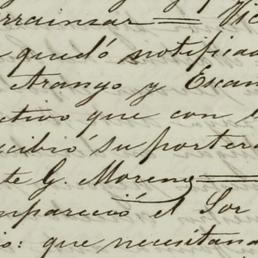 rrainzar = Vic
quedó notificad
Arango y Escan
ctivo que con
cibió su portero
te G. Moreno =
mpareció el Sor
o: que necesitand